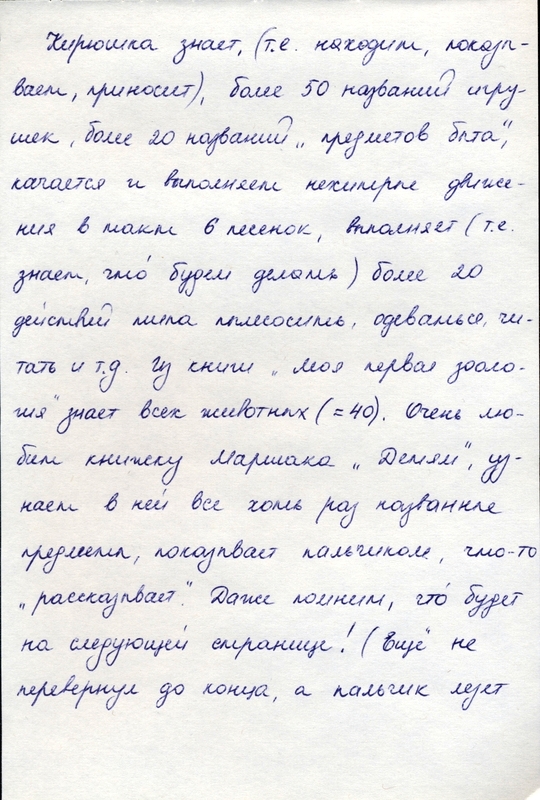 Кирюшка знает, (т.е. находит, показы-
вает, приносит), более 50 названий игру-
шек, более 20 названий „предметов быта",
качается и выполняет нехитрые движе-
ния в такт 6 песенок, выполняет (т.е.
знает, что́ будет делать) более 20
действий типа пылесосить, одеваться, чи-
тать и т.д. Из книги „Моя первая зооло-
гия" знает всех животных (=40). Очень лю-
бит книжку Маршака „Детям", уз-
нает в ней все хоть раз названные
предметы, показывает пальчиком, что-то
„рассказывает". Даже помнит, что́ будет
на следующей странице! (Ещё не
перевернул до конца, а пальчик лезет